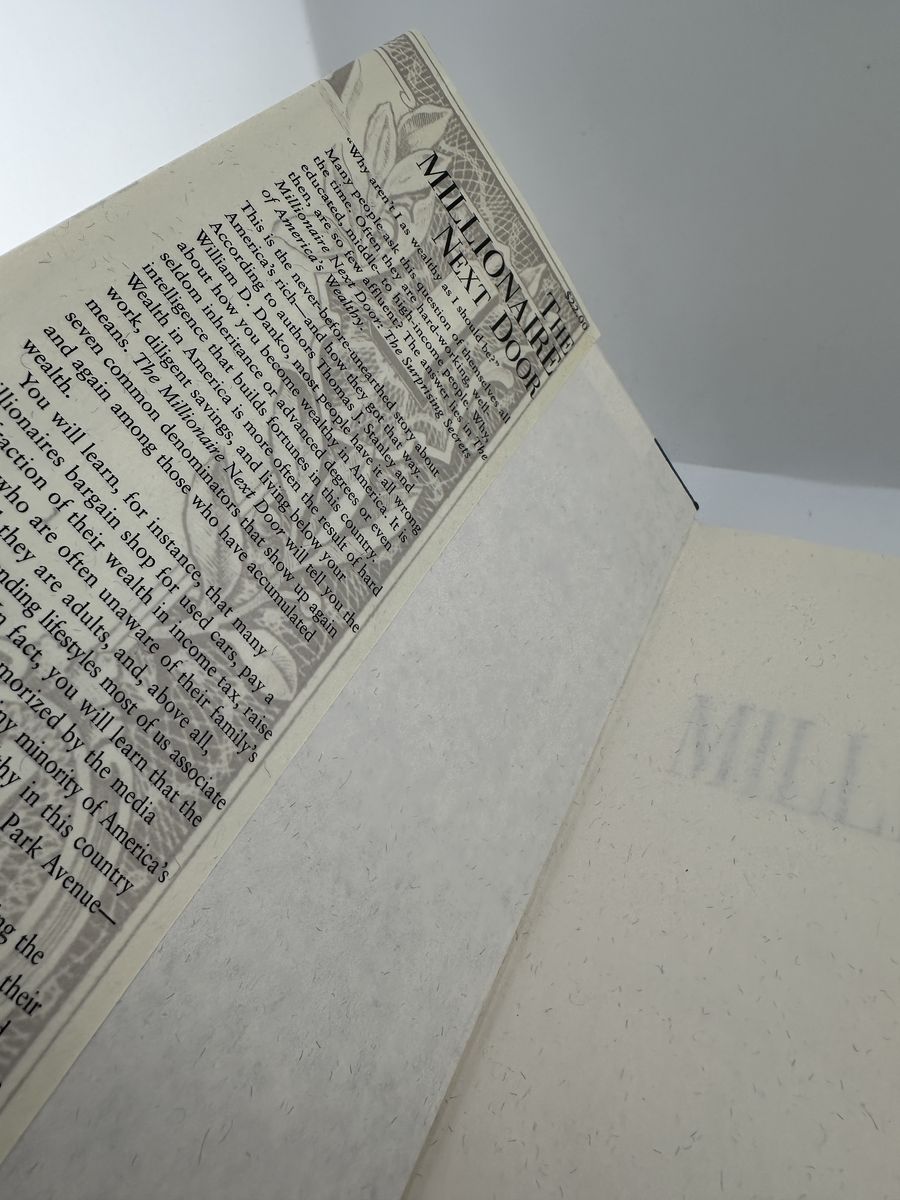 THE
MILLIONAIRE
NEXT DOOR
"Why aren't I as wealthy as I should be?"
Many people ask this question of themselves all
the time. Often they are hard-working, well-
educated, middle- to high-income people. Why,
then, are so few affluent? The answer lies in The
Millionaire Next Door: The Surprising Secrets
of America's Wealthy.
This is the never-before-unearthed story about
America's rich—and how they got that way.
According to authors Thomas J. Stanley and
William D. Danko, most people have it all wrong
about how you become wealthy in America. It is
seldom inheritance or advanced degrees or even
intelligence that builds fortunes in this country.
Wealth in America is more often the result of hard
work, diligent savings, and living below your
means. The Millionaire Next Door will tell you the
seven common denominators that show up again
and again among those who have accumulated
wealth.
You will learn, for instance, that many
llionaires bargain shop for used cars, pay a
raction of their wealth in income tax, raise
who are often unaware of their family's
they are adults, and, above all,
nding lifestyles most of us associate
n fact, you will learn that the
morized by the media
ny minority of America's
hy in this country
Park Avenue—
ng the
their
d
MILL